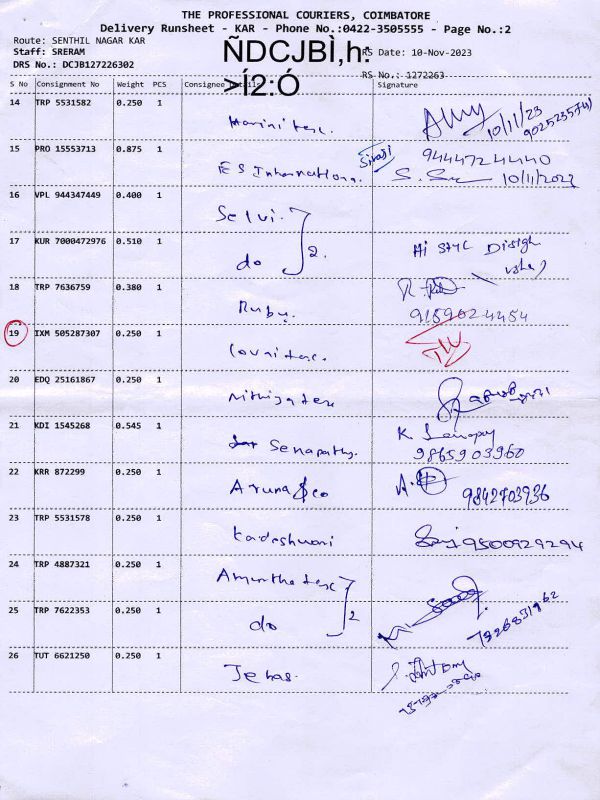 THE PROFESSIONAL COURIERS, COIMBATORE
Delivery Runsheet - KAR - Phone No.:0422-3505555 - Page No.:2
Route: SENTHIL NAGAR KAR
Staff: SRERAM RS Date: 10-Nov-2023
DRS No.: DCJB127226302
ÑDCJBÌ,h:
>Í2:Ó
RS No.: 1272263
S No Consignment No Weight PCS Consignee Details Signature
14 TRP 5531582 0.250 1 10/11/23
15 PRO 15553713 0.875 1 ES International. Sivaji 9444724440
10/11/2023
16 VPL 944347449 0.400 1 Selvi. 2.
17 KUR 7000472976 0.510 1 do
18 TRP 7636759 0.380 1 Ruby. 9159024454
19 IXM 505287307 0.250 1
20 EDQ 25161867 0.250 1
21 KDI 1545268 0.545 1 Senapathy. K.
9865903960
22 KRR 872299 0.250 1 Aruna & co 9842703936
23 TRP 5531578 0.250 1 9500929294
24 TRP 4887321 0.250 1 2
25 TRP 7622353 0.250 1 do
26 TUT 6621250 0.250 1 Jebas.